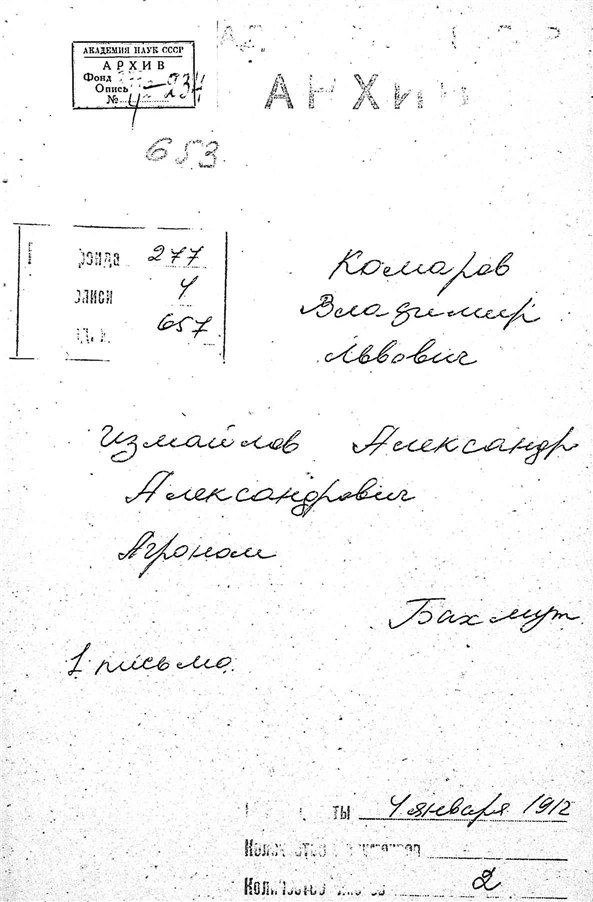 АКАДЕМИЯ НАУК СССР
АРХИВ
Фонд
Опись
№
АРХИВ
653
фонда 277
описи 4
657
Комаров
Владимир
Львович
Измайлов Александр
Александрович
Агроном
Бахмут
1 письмо.
ты 4 января 1912
Количество
Количество 2